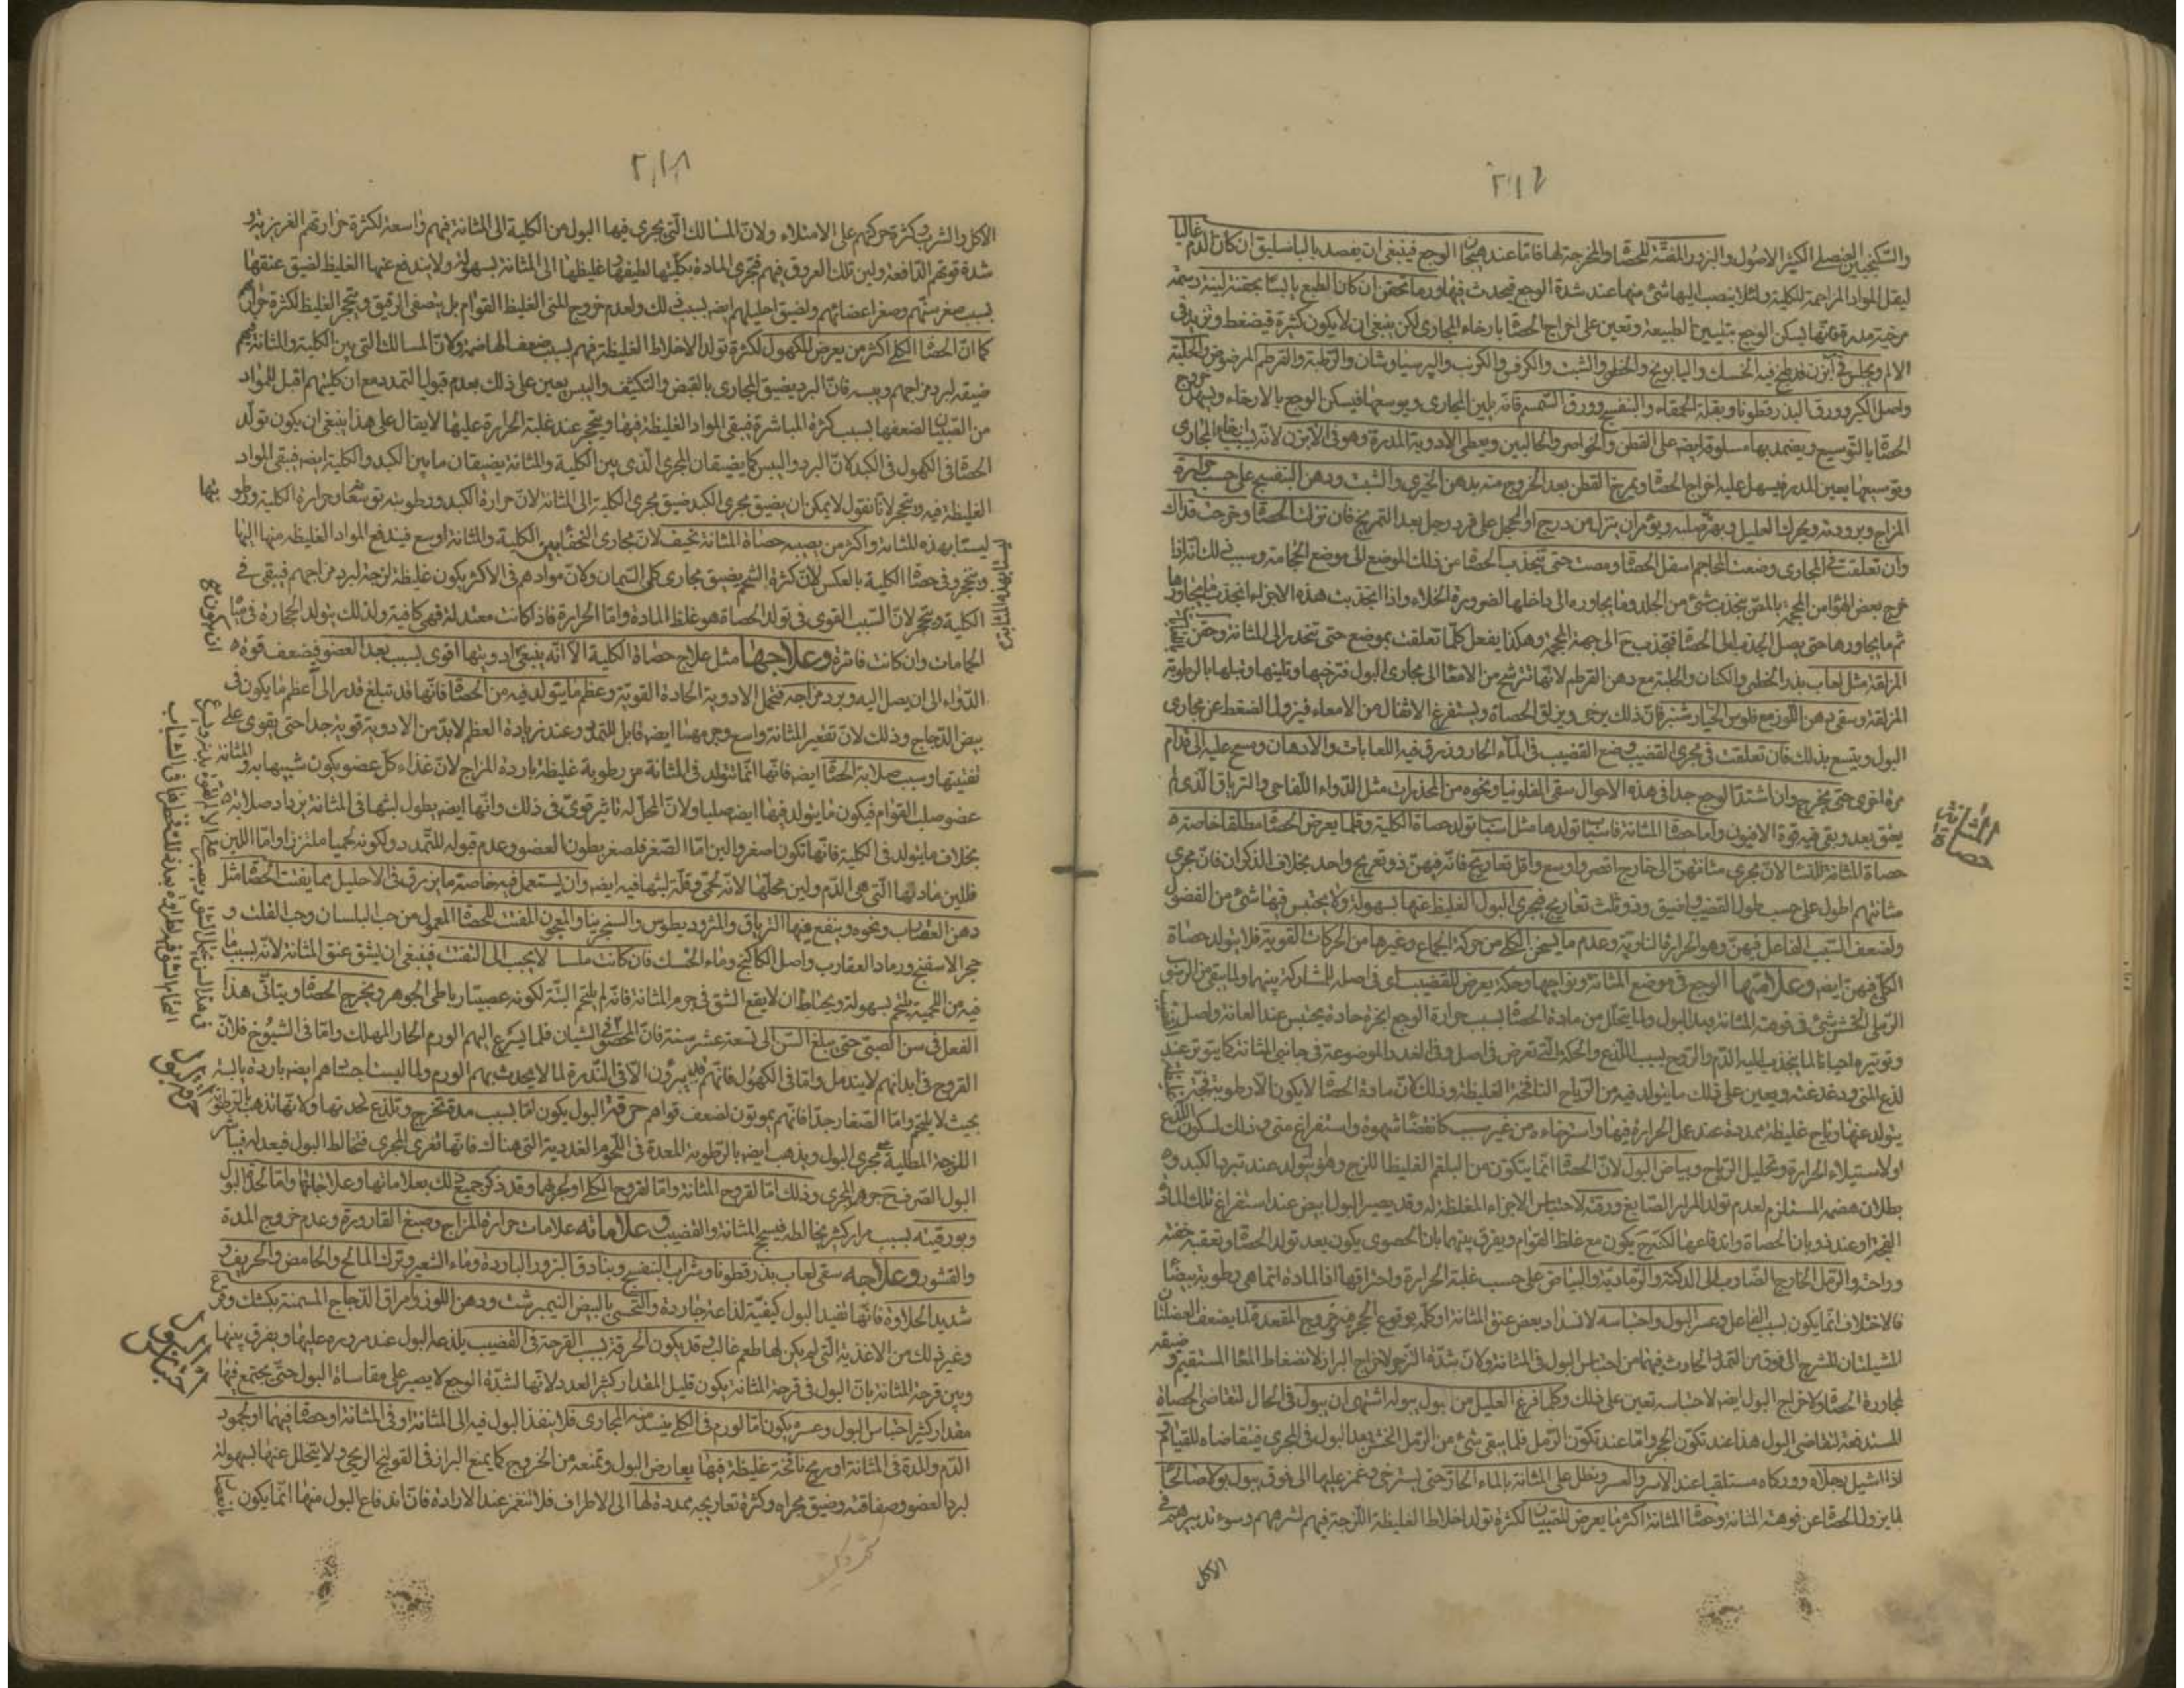 ٢١٧
والسكنجبين العنصلي الكثير الاصول والبزور المفتتة للحصاة والمخرجة لها فاما عند هيجان الوجع فينبغي ان يفصد بالباسليق ان كان الدم غالبا
ليقل المواد المزاحمة للكلية ولئلا ينصب اليها شئ منها عند شدة الوجع فيحدث فيها ورما تحقن ان كان الطبع يابسا بحقنة لينة دسمة
مرخية مدرة فانها يسكن الوجع بتليين الطبيعة وتعين على اخراج الحصاة بارخاء المجاري لكن ينبغي ان لا يكون كثيرة فيضغط ويزيد في
الالم ويجلس في آبزن قد طبخ فيه الحسك والبابونج والخطمي والشبت والكرفس والكرنب والبرسياوشان والرطبة والقرطم المرضوض والحلبة
واصل الكبر وورق البذرقطونا وبقلة الحمقاء والبنفسج وورق السمسم فانه يلين المجاري ويوسعها فيسكن الوجع بالارخاء ويسهل خروج
الحصاة بالتوسيع ويضمد بها مسلوقة ايضا على القطن والخواصر والحالبين ويعطى الادوية المدرة وهو في الابزن لانه بسبب ارخاء المجاري
وتوسيعها يعين المدر فيسهل عليه اخراج الحصاة ويمرخ القطن بعد الخروج منه بدهن الخيري والشبت ودهن البنفسج على حسب حرارة
المزاج وبرودته ويحرك العليل ويهز صلبه ويؤمر ان ينزل من درج او يحجل على فرد رجل بعد التمريخ فان نزلت الحصاة وخرجت فذاك
وان تعلقت في المجاري وضعت المحاجم اسفل الحصاة ومصت حتى تنجذب الحصاة من ذلك الموضع الى موضع الحجامة وسبب ذلك انه اذا
خرج بعض الهواء من المحجمة بالمص ينجذب شئ من الجلد وما يجاوره الى داخلها لضرورة الخلاء واذا انجذبت هذه الاجزاء انجذب ما يجاورها
ثم ما يجاورها حتى يصل الجذب الى الحصاة فتنجذب ح الى جهة المحجمة وهكذا يفعل كلما تعلقت بموضع حتى تنحدر الى المثانة وحقن
المزلقة مثل لعاب بذر الخطمي والكتان والحلبة مع دهن القرطم لانها تترشح من الامعاء الى مجاري البول فترخيها وتلينها وتبلها بالرطوبة
المزلقة وسقي دهن اللوز مع فلوس الخيارشنبر فان ذلك يرخي ويزلق الحصاة ويستفرغ الاثقال من الامعاء فيزول الضغط عن مجاري
البول ويتسع بذلك فان تعلقت في مجرى القضيب وضع القضيب في الماء الحار وزرق فيه اللعابات والادهان ومسح عليه الى قدام
مرة اخرى حتى يخرج وان اشتد الوجع جدا في هذه الاحوال سقي الفلونيا ونحوه من المخدرات مثل الدواء اللفاحي والترياق الذي لم
يعتق بعد وبقي فيه قوة الافيون واما حصاة المثانة فاسباب تولدها مثل اسباب تولد حصاة الكلية وقلما يعرض الحصاة مطلقا خاصة
حصاة المثانة للنساء لان مجرى مثانتهن الى خارج اقصر واوسع واقل تعاريج فانه فيهن ذو تعريج واحد بخلاف الذكران فان مجرى
مثانتهم اطول على حسب طول القضيب واضيق وذو ثلث تعاريج فيجري البول الغليظ عنها بسهولة ولا يحتبس فيها شئ من الفضول
ولضعف السبب الفاعل فيهن وهو الحرارة النارية وعدم ما يسخن الكلى من حركة الجماع وغيرها من الحركات القوية فلا يتولد حصاة
الكلى فيهن ايضا وعلامتها الوجع في موضع المثانة ونواحيها وحكة يعرض للقضيب اي في اصله للمشاركة بينهما ولما يبقى من الرسوب
الرملي الخشن شئ في فوهة المثانة بعد البول ولما يتحلل من مادة الحصاة بسبب حرارة الوجع ابخرة حادة يحتبس عند العانة واصل
وتوتره احيانا لما ينجذب اليه الدم والروح بسبب اللذع والحكة التي تعرض في اصله وفي الغدد الموضوعة في جانبي المثانة كما يتوتر عند
لذع المني ودغدغته ويعين على ذلك ما يتولد فيه من الرياح النافخة الغليظة وذلك لان مادة الحصاة لا يكون الا رطوبة فجة
يتولد عنها رياح غليظة ممددة عند عمل الحرارة فيها واسترخاءه من غير سبب كانقضاء شهوة واستفراغ مني وذلك لسكون اللذع
او لاستيلاء الحرارة وتحليل الرياح وبياض البول لان الحصاة انما يتكون من البلغم الغليظ اللزج وهو يتولد عند تبرد الكبد و
بطلان هضمه المستلزم لعدم تولد المرار الصابغ ورقته لاحتباس الاجزاء المغلظة له وقد يصير البول ابيض عند استفراغ تلك المادة
الفجة او عند ذوبان الحصاة واندفاعها لكنه ح يكون مع غلظ القوام ويفرق بينهما بان الحصوي يكون بعد تولد الحصاة وتعقبه خفة
وراحة والرمل الخارج الضارب الى الدكنة والرمادية والبياض على حسب غلبة الحرارة واحتراقها اذ المادة انما هي رطوبة بيضاء
فالاختلاف انما يكون بسبب الفاعل وعسر البول واحتباسه لانسداد بعض عنق المثانة او كله بوقوع الحجر فيه وخروج المقعدة لما يضعف العضلتان
المشيلتان للشرج الى فوق من التمدد الحادث فيهما من احتباس البول في المثانة ولان شدة التزحر لاخراج البراز لانضغاط المعا المستقيم و ضيقه
لمجاورة الحصاة ولاخراج البول ايضا لاحتباسه تعين على ذلك وكلما فرغ العليل من بول يبوله اشتهى ان يبول في الحال لتقاضي الحصاة
المستدفعة لتقاضي البول هذا عند تكون الحجر واما عند تكون الرمل فلما يبقى شئ من الرمل الخشن بعد البول في المجرى فيتقاضاه للقيام
اذا اشيل رجلاه ووركاه مستلقيا عند الاسر والعسر ونطل على المثانة بالماء الحار حتى يسترخي وغمز عليها الى فوق يبول بولا صالحا
لما يزول الحصاة عن فوهة المثانة وحصاة المثانة اكثر ما يعرض للصبيان لكثرة تولد اخلاط الغليظة اللزجة فيهم لشرههم وسوء تدبيرهم في
الاكل
حصاة المثانة
٢١٨
الاكل والشرب وكثرة حركتهم على الامتلاء ولان المسالك التي يجري فيها البول من الكلية الى المثانة فيهم واسعة لكثرة حرارتهم الغريزية و
شدة قوتهم الدافعة ولين تلك العروق فيهم فتجري المادة بكليتها لطيفها وغليظها الى المثانة بسهولة ولا يندفع عنها الغليظ لضيق عنقها
بسبب صغر سنهم وصغر اعضائهم ولضيق احليلهم ايضا بسبب ذلك ولعدم خروج المني الغليظ القوام بل يتصفى الرقيق ويتحجر الغليظ لكثرة حرارتهم
كما ان الحصاة الكلى اكثر من يعرض للكهول لكثرة تولد الاخلاط الغليظة فيهم بسبب ضعف الهاضمة ولان المسالك التي بين الكلية والمثانة فيهم
ضيقة لبرد مزاجهم ويبسه فان البرد يضيق المجاري بالقبض والتكثيف واليبس يعين على ذلك بعدم قبول التمدد مع ان كليتهم اقبل للمواد
من الصبيان لضعفها بسبب كثرة المباشرة فيبقى المواد الغليظة فيها ويتحجر عند غلبة الحرارة عليها لا يقال على هذا ينبغي ان يكون تولد
الحصاة في الكهول في الكبد لان البرد واليبس كما يضيقان المجرى الذي بين الكلية والمثانة يضيقان ما بين الكبد والكلية ايضا فيبقى المواد
الغليظة فيه ويتحجر لانا نقول لا يمكن ان يضيق مجرى الكبد ضيق مجرى الكلية الى المثانة لان حرارة الكبد ورطوبته توسعها وحرارة الكلية ورطوبتها
ليستا بهذه المثابة واكثر من يصيبه حصاة المثانة نحيف لان مجاري النحفاء بين الكلية والمثانة اوسع فيندفع المواد الغليظة منها اليها
ويتحجر وفي حصاة الكلية بالعكس لان كثرة الشحم يضيق مجاري كلى السمان ولان موادهم في الاكثر يكون غليظة لزجة لبرد مزاجهم فيبقى في
الكلية ويتحجر لان السبب القوي في تولد الحصاة هو غلظ المادة واما الحرارة فاذا كانت معتدلة فهي كافية ولذلك يتولد الحجارة في مياه
الحمامات وان كانت فاترة وعلاجها مثل علاج حصاة الكلية الا انه ينبغي ان يكون ادويتها اقوى بسبب بعد العضو فيضعف قوة
الدواء الى ان يصل اليه وبرد مزاجه فتحمل الادوية الحادة القوية وعظم ما يتولد فيه من الحصاة فانها قد تبلغ قدرا الى اعظم ما يكون في
بيض الدجاج وذلك لان تقعير المثانة واسع وجرمها ايضا قابل للتمدد وعند زيادة العظم لابد من الادوية قوية جدا حتى يقوى على
تفتيتها وسبب صلابة الحصاة ايضا فانها انما تتولد في المثانة من رطوبة غليظة باردة المزاج لان غذاء كل عضو يكون شبيها به والمثانة
عضو صلب القوام فيكون ما يتولد فيها ايضا صلبا ولان المحل له تاثير قوي في ذلك وانها ايضا يطول لبثها في المثانة يزداد صلابة
بخلاف ما يتولد في الكلية فانها تكون اصغر والين اما الصغر فلصغر بطون العضو وعدم قبوله للتمدد ولكونه لحميا ملتززا واما اللين
فللين مادتها التي هي الدم ولين محلها لانه لحمي وقلة لبثها فيه ايضا وان يستعمل فيه خاصة ما يزرق في الاحليل مما يفتت الحصاة مثل
دهن العقارب ونحوه وينفع فيها الترياق والمثروديطوس والسنجرينا والمعجون المفتت للحصاة المعمول من حب البلسان وحب القلت و
حجر الاسفنج ورماد العقارب واصل الكاكنج وماء الحسك فان كانت ملسا لا يجيب الى التفتت فينبغي ان يشق عنق المثانة لانه بسبب ما
فيه من اللحمية يلتحم بسهولة ويحتاط ان لا يقع الشق في جرم المثانة فانه لم يلتحم البتة لكونه عصبيا رباطي الجوهر ويخرج الحصاة ويتأتى هذا
الفعل في سن الصبي حتى يبلغ السن الى تسعة عشر سنة فان المحصو في الشبان قلما يسرع اليهم الورم الحار المهلك واما في الشيوخ فلان
القروح في ابدانهم لا يندمل واما في الكهول فانهم يبرؤن الا في الندرة لما لا يحدث بهم الورم ولما ليست اجسادهم ايضا باردة يابسة
بحيث لا يلتحم واما الصغار جدا فانهم يموتون لضعف قواهم حرقة البول يكون اما بسبب مدة تخرج وتلذع لحدتها ولانها تذهب بالرطوبة
اللزجة المطلية على مجرى البول ويذهب ايضا بالرطوبة المعدة في اللحوم الغددية التي هناك فانها تغري المجرى فتخالط البول فيعدله فيباشر
البول الصرف ح جوهر المجرى وذلك اما لقروح المثانة واما لقروح الكلى او لجربها وقد ذكر جميع ذلك بعلاماتها وعلاجاتها واما لحدة البول
وبورقيته بسبب مرار كثير يخالطه فيسحج المثانة والقضيب وعلاماته علامات حرارة المزاج وصبغ القارورة وعدم خروج المدة
والقشور وعلاجه سقي لعاب بذرقطونا وشراب البنفسج وبنادق البزور الباردة وماء الشعير وترك المالح والحامض والحريف و
شديد الحلاوة فانها تفيد البول كيفية لذاعة حارة والتحسي بالبيض النيمبرشت ودهن اللوز وامراق الدجاج المسمنة بكشك وقرع
وغير ذلك من الاغذية التي لم يكن لها طعم غالب وقد يكون الحرقة بسبب القرحة في القضيب يلذعه البول عند مروره عليها ويفرق بينها
وبين قرحة المثانة بان البول في قرحة المثانة يكون قليل المقدار كثير العدد لانها لشدة الوجع لا يصبر على مقاساة البول حتى يجتمع فيها
مقدار كثير احتباس البول وعسره يكون اما لورم في الكلى ينسد منه المجاري فلا ينفذ البول فيه الى المثانة او في المثانة او حصاة فيهما او لجمود
الدم والمدة في المثانة او ريح نافخة غليظة فيها يعارض البول وتمنعه من الخروج كما يمنع البراز في القولنج الريحي ولا يتحلل عنها بسهولة
لبرد العضو وصفاقته وضيق مجراه وكثرة تعاريجه ممددة لها الى الاطراف فلا تنغمز عند الارادة فان اندفاع البول منها انما يكون بانعصار
حرقة البول
احتباس البول